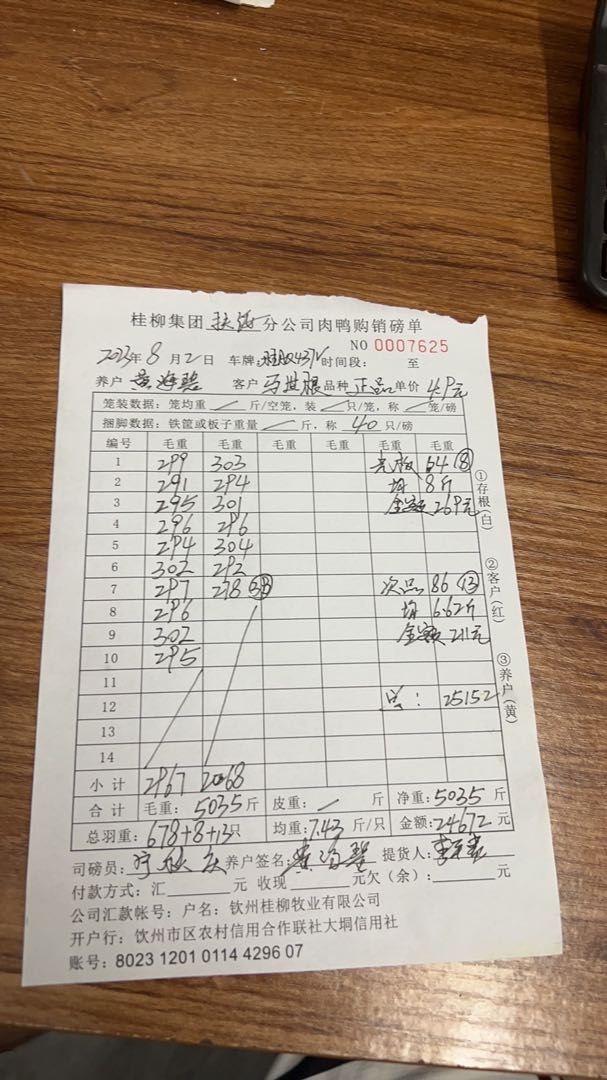 桂柳集团 扶绥 分公司肉鸭购销磅单
NO 0007625
2023年 8 月 21 日 车牌: 时间段: 至
养户 黄海碧 客户 马世根 品种 正品 单价 4.9元
笼装数据:笼均重 / 斤/空笼,装 / 只/笼,称 / 笼/磅
捆脚数据:铁筐或板子重量 / 斤,称 40 只/磅
编号 毛重 毛重 毛重 毛重 毛重 毛重
1 299 303 64 ⑧
2 291 294 均 8斤
3 295 301 金额 269元
4 296 296
5 294 304
6 302 292
7 297 278 38 次品 86 ⑬
8 296 均 6.62斤
9 302 金额 211元
10 295
11
12 总: 25152
13
14
小 计 2967 2068
合 计 毛重: 5035 斤 皮重: / 斤 净重: 5035 斤
总羽重: 678+8+13 只 均重: 7.43 斤/只 金额: 24672 元
司磅员: 养户签名: 黄海碧 提货人:
付款方式:汇 元 收现 元欠(余): 元
公司汇款帐号:户名:钦州桂柳牧业有限公司
开户行:钦州市区农村信用合作联社大垌信用社
账号: 8023 1201 0114 4296 07
①存根(白)
②客户(红)
③养户(黄)